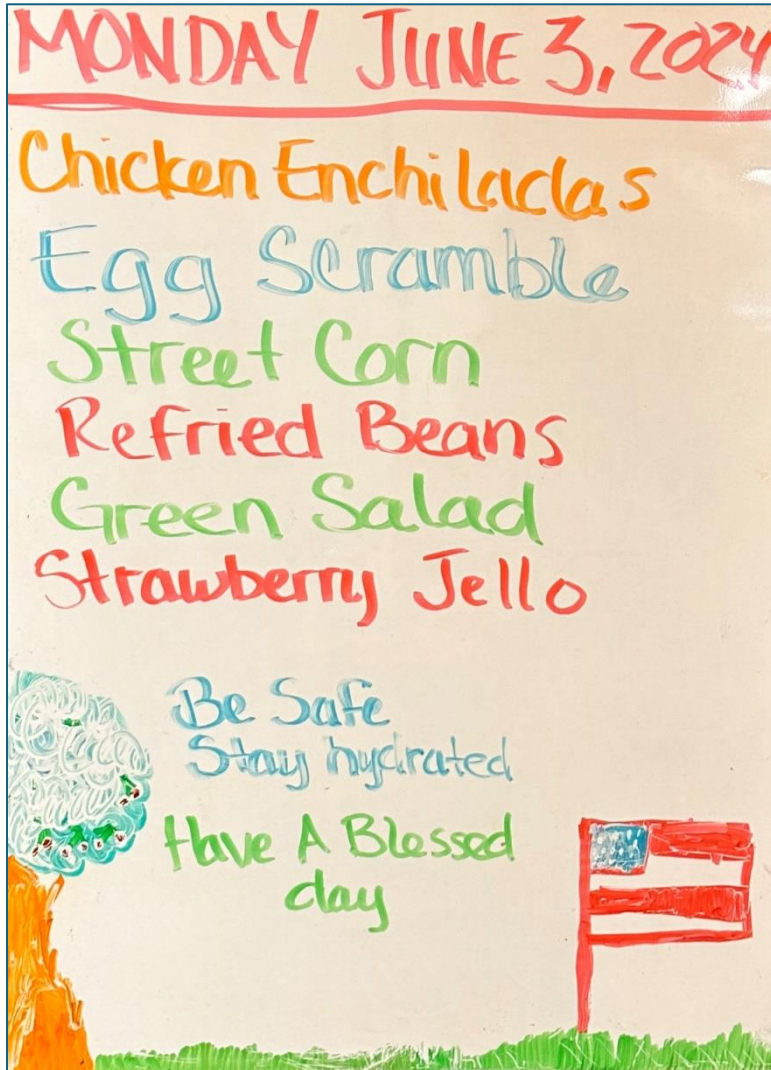 MONDAY JUNE 3, 2024
Chicken Enchiladas
Egg Scramble
Street Corn
Refried Beans
Green Salad
Strawberry Jello
Be Safe
Stay hydrated
Have A Blessed
day